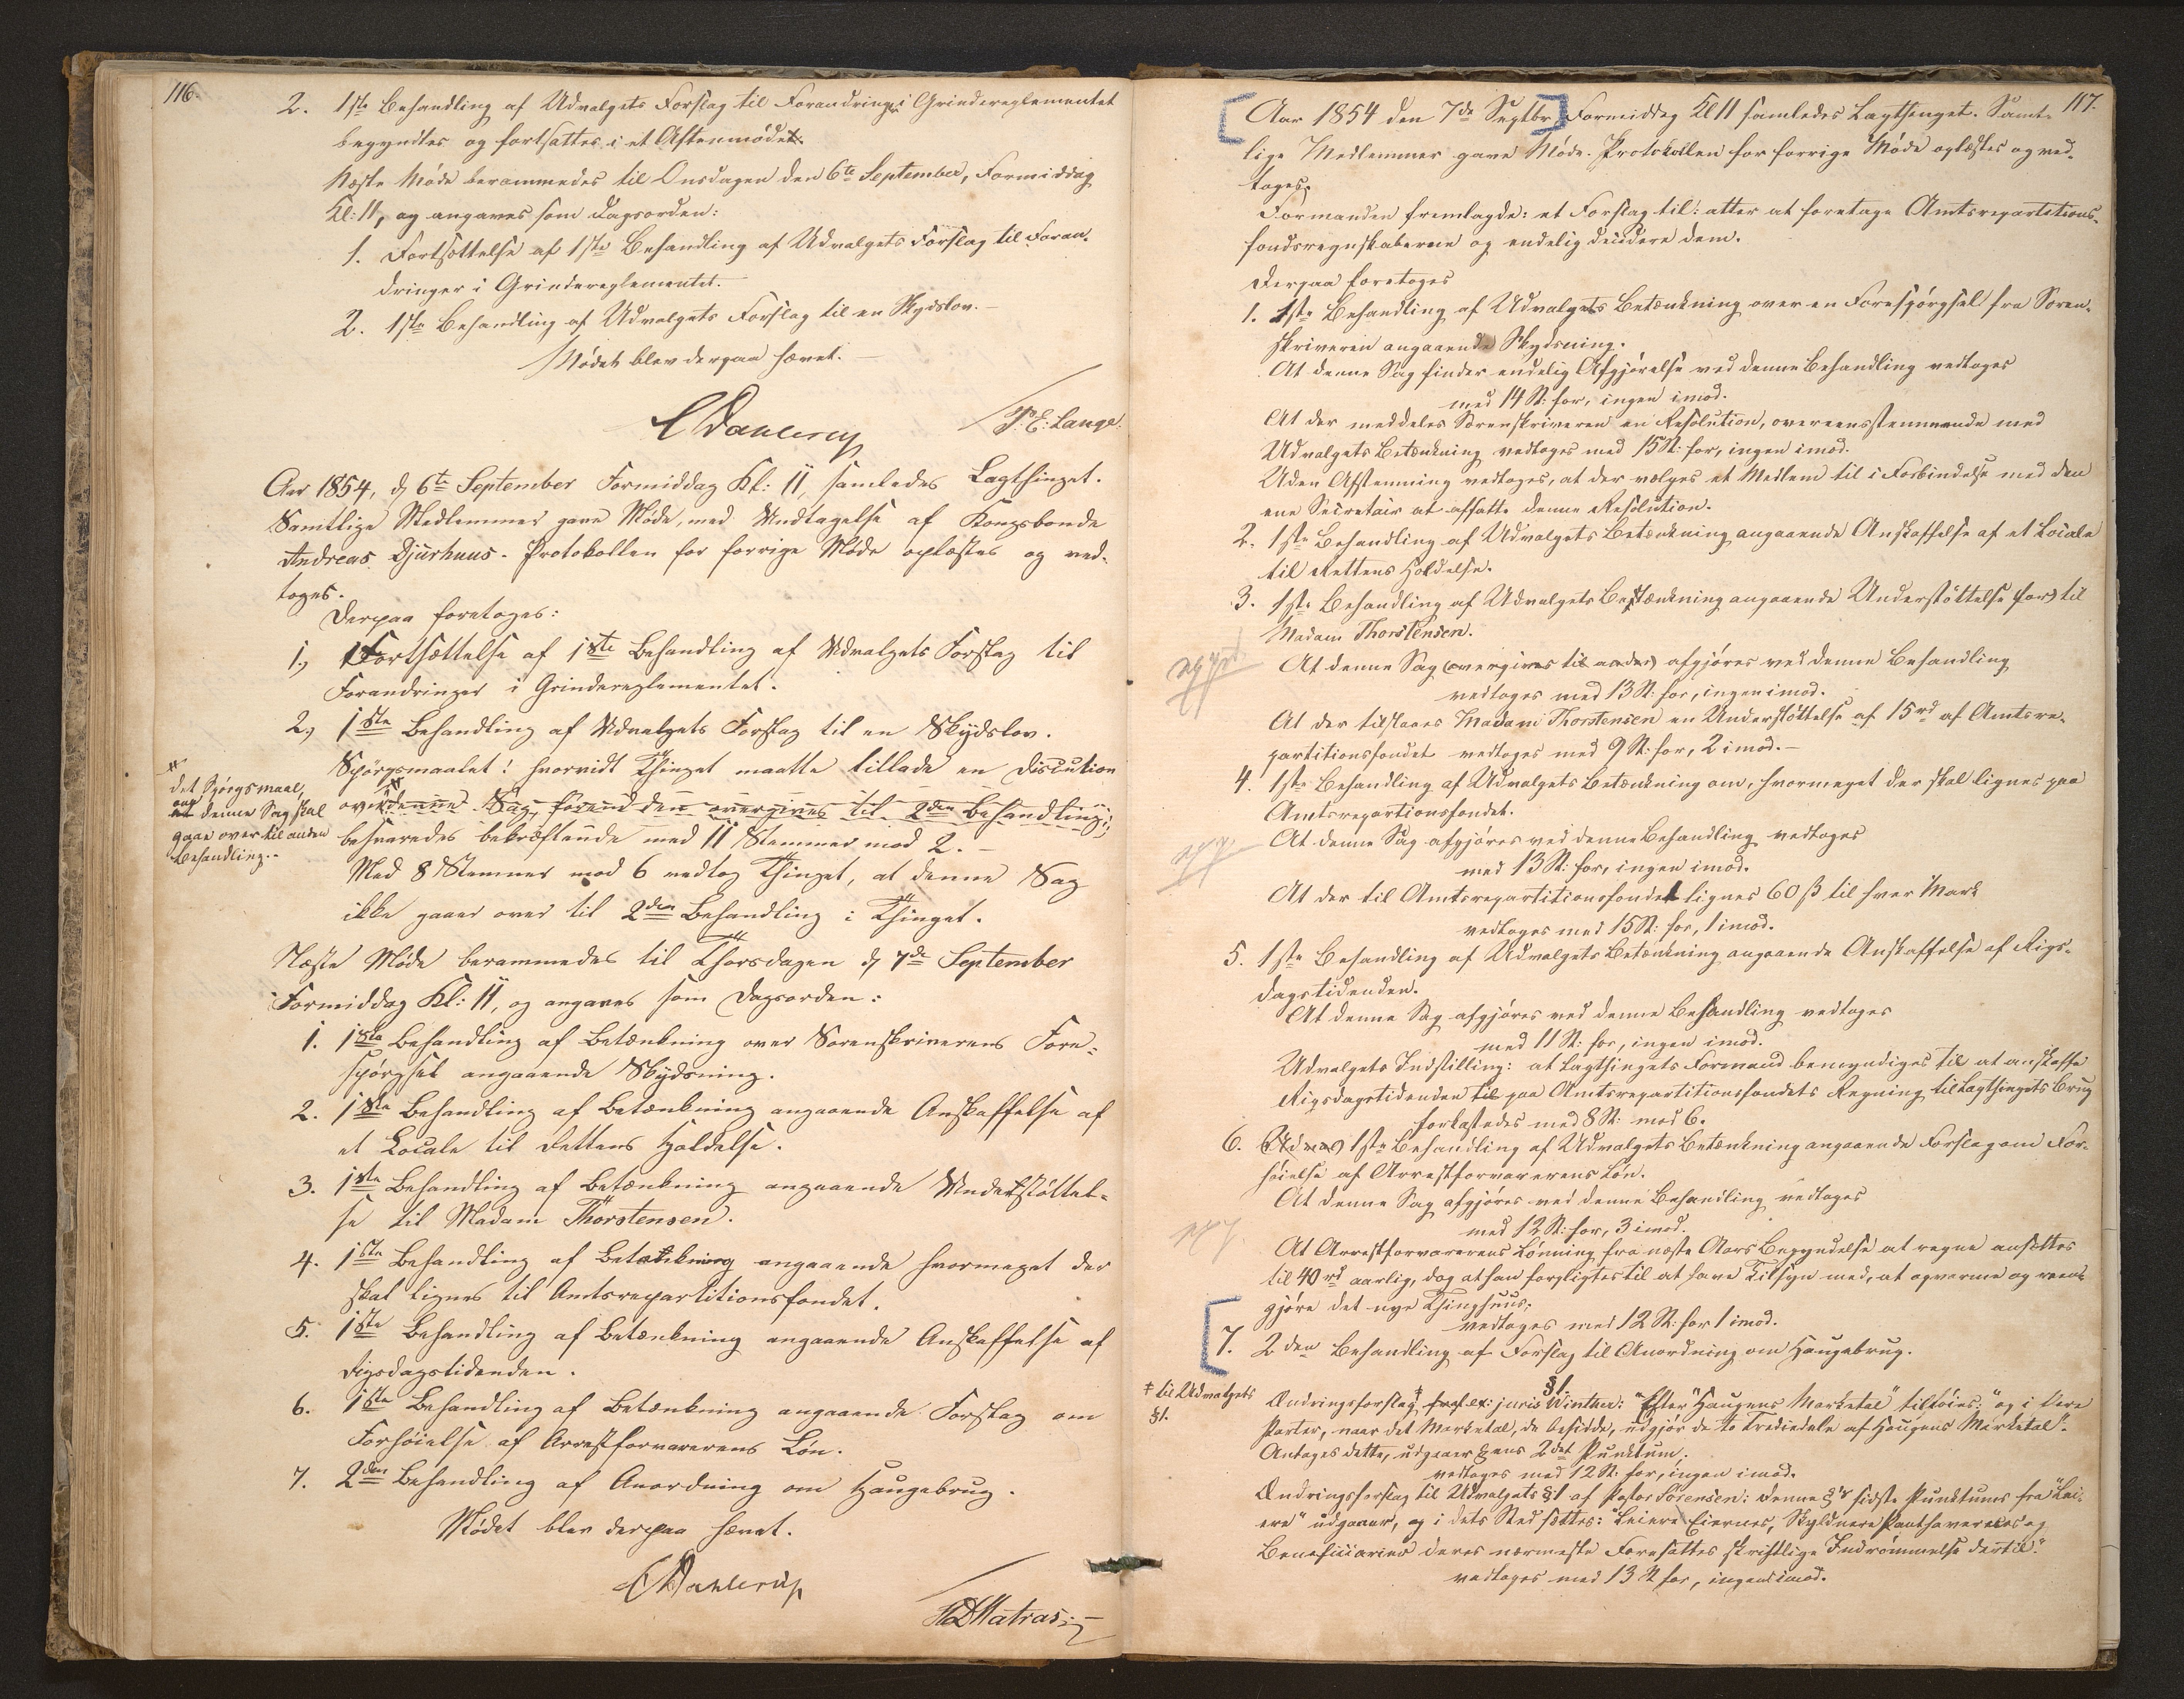 116.
2. 1ste Behandling af Udvalgets Forslag til Forandringer i Grindereglementet
begyndtes og fortsattes i et Aftenmøde.
Næste Møde berammedes til Onsdagen den 6te September, Formiddag
Kl: 11, og angaves som Dagsorden:
1. Fortsættelse af 1ste Behandling af Udvalgets Forslag til Foran-
dringer i Grindereglementet.
2. 1ste Behandling af Udvalgets Forslag til en Skydslov. –
Mødet blev derpaa hævet. –
C Dahlerup
P. E: Lange.
Aar 1854, d. 6te September Formiddag Kl: 11, samledes Lagthinget.
Samtlige Medlemmer gave Møde, med Undtagelse af Kongsbonde
Andreas Djurhuus. Protokollen for forrige Møde oplæstes og ved-
toges.
Derpaa foretoges:
1., Fortsættelse af 1ste Behandling af Udvalgets Forslag til
Forandringer i Grindereglementet.
2., 1ste Behandling af Udvalgets Forslag til en Skydslov.
Spørgsmaalet: hvorvidt Thinget maatte tillade en Discution
over denne Sag, førend den overgives til 2den Behandling;
det Spørgsmaal,
om denne Sag skal
gaae over til anden
Behandling.-
besvaredes bekræftende med 11 Stemmer mod 2. –
Med 8 Stemmer mod 6 vedtog Thinget, at denne Sag
ikke gaaer over til 2den Behandling i Thinget.
Næste Møde berammedes til Thorsdagen d. 7de September
Formiddag Kl: 11, og angaves som Dagsorden:
1. 1ste Behandling af Betænkning over Sorenskriverens Fore-
spørgsel angaaende Skydsning.
2. 1ste Behandling af Betænkning angaaende Anskaffelse af
et Locale til Rettens Holdelse.
3. 1ste Behandling af Betænkning angaaende Understøttel-
se til Madam Thorstensen.
4. 1ste Behandling af Betænkning angaaende hvormeget der
skal lignes til Amtsrepartitionsfondet.
5. 1ste Behandling af Betænkning angaaende Anskaffelse af
Rigsdagstidenden.
6. 1ste Behandling af Betænkning angaaende Forslag om
Forhøielse af Arrestforvarerens Løn.
7. 2den Behandling af Anordning om Haugebrug.
Mødet blev derpaa hævet.
C Dahlerup
HD Matras
117.
Aar 1854 den 7de Septbr Formiddag Kl 11 samledes Lagthinget. Samt-
lige Medlemmer gave Møde. Protokollen for forrige Møde oplæstes og ved-
toges.
Formanden fremlagde: et Forslag til: atter at foretage Amtsrepartitions-
fondsregnskaberne og endelig decidere dem.
Derpaa foretoges
1. 1ste Behandling af Udvalgets Betænkning over en Forespørgsel fra Soren-
skriveren angaaende Skydsning.
At denne Sag finder endelig Afgjørelse ved denne Behandling vedtoges
med 14 St: for, ingen imod.
At der meddeles Sorenskriveren en Resolution, overeensstemmende med
Udvalgets Betænkning vedtoges med 15 St: for, ingen imod.
Uden Afstemning vedtoges, at der vælges et Medlem til i Forbindelse med den
ene Secretair at affatte denne Resolution.
2. 1ste Behandling af Udvalgets Betænkning angaaende Anskaffelse af et Locale
til Rettens Holdelse.
3. 1ste Behandling af Udvalgets Betænkning angaaende Understøttelse (for) til
Madam Thorstensen.
At denne Sag (overgives til anden) afgjøres ved denne Behandling
vedtoges med 13 St: for, ingen imod.
At der tilstaaes Madam Thorstensen en Understøttelse af 15 rd af Amtsre-
partitionsfondet vedtoges med 9 St: for, 2 imod. –
4. 1ste Behandling af Udvalgets Betænkning om, hvormeget der skal lignes paa
Amtsrepartionsfondet.
At denne Sag afgjøres ved denne Behandling vedtoges
med 13 St: for, ingen imod.
At der til Amtsrepartitionsfondet lignes 60 ß til hver Mark
vedtoges med 15 St: for, 1 imod.
5. 1ste Behandling af Udvalgets Betænkning angaaende Anskaffelse af Rigs-
dagstidenden.
At denne Sag afgjøres ved denne Behandling vedtoges
med 11 St: for, ingen imod.
Udvalgets Indstilling: at Lagthingets Formand bemyndiges til at anskaffe
Rigsdagstidenden til paa Amtsrepartitionsfondets Regning til Lagthingets Brug
forkastedes med 8 St: mod 6.
6. 1ste Behandling af Udvalgets Betænkning angaaende Forslag om For-
høielse af Arrestforvarerens Løn.
At denne Sag afgjøres ved denne Behandling vedtoges
med 12 St: for, 3 imod.
At Arrestforvarerens Lønning fra næste Aars Begyndelse at regne ansættes
til 40 rd aarlig, dog at han forpligtes til at have Tilsyn med, at opvarme og reen-
gjøre det nye Thinghuus;
vedtoges med 12 St: for 1 imod.
7. 2den Behandling af Forslag til Anordning om Haugebrug.
§1.
til Udvalgets
§1.
Ændringsforslag af ex: juris Winther: "Efter "Haugens Marketal" tilføies: "og i Øvre
Parter, naar det Marketal, de besidde, udgjør de to Trediedele af Haugens Marketal".
Antages dette, udgaaer §ens 2det Punktum;
vedtoges med 12 St. for, ingen imod.
Ændringsforslag til Udvalgets §1 af Pastor Sørensen: Denne §'s sidste Punktums fra "Lei-
ere" udgaaer, og i dets Sted sættes: Leiere Eiernes, Skyldnere Panthavernes og
Beneficiarier deres nærmeste Foresattes skriftlige Indrømmelse dertil."
vedtoges med 13 St for, ingen imod.